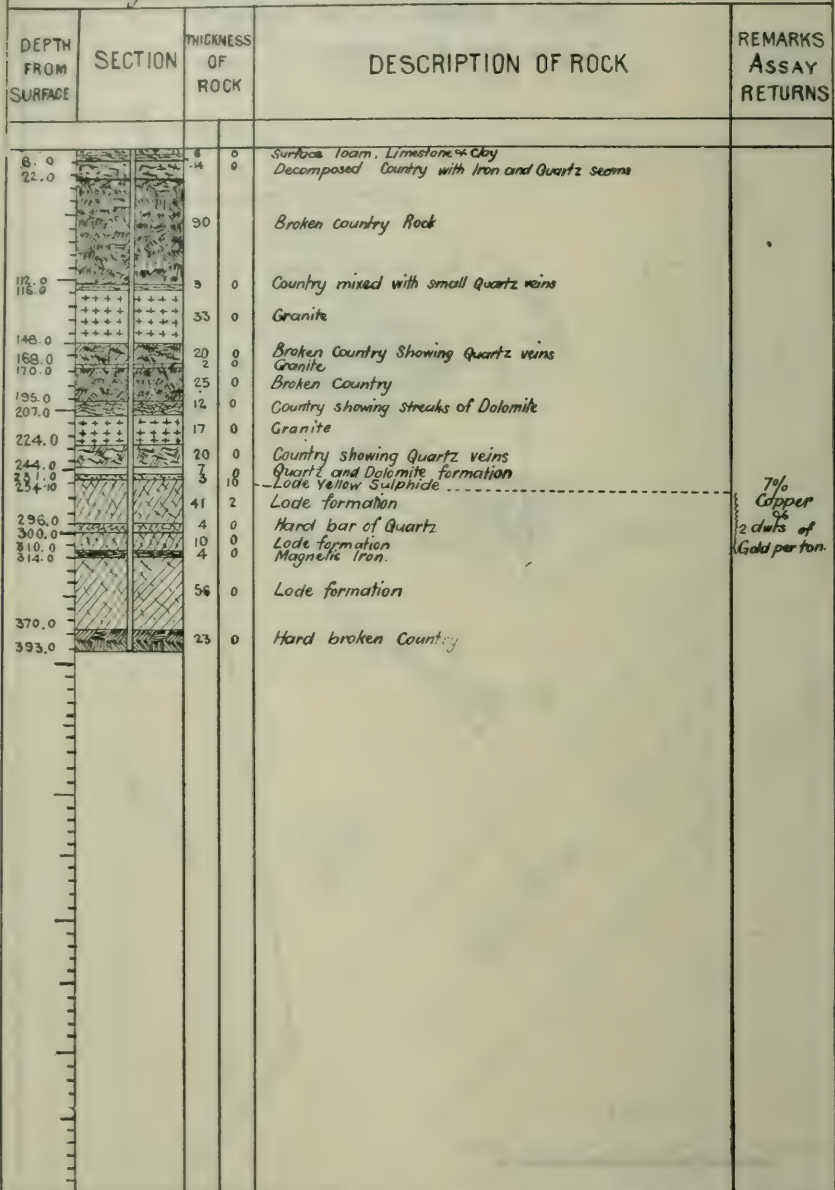 DEPTH FROM SURFACE SECTION THICKNESS OF ROCK DESCRIPTION OF ROCK REMARKS ASSAY RETURNS
8.0 8 0 Surface loam, Limestone & Clay
22.0 14 0 Decomposed Country with Iron and Quartz seams
90 Broken country Rock
112.0
116.0 3 0 Country mixed with small Quartz veins
33 0 Granite
148.0
168.0 20 0 Broken Country Showing Quartz veins
170.0 2 0 Granite
195.0 25 0 Broken Country
207.0 12 0 Country showing streaks of Dolomite
224.0 17 0 Granite
20 0 Country showing Quartz veins
244.0 7 0 Quartz and Dolomite formation
251.0 3 10 Lode Yellow Sulphide
254.10 7%
41 2 Lode formation Copper
296.0 4 0 Hard bar of Quartz 2 dwts of
300.0
310.0 10 0 Lode formation Gold per ton.
314.0 4 0 Magnetic Iron.
56 0 Lode formation
370.0
393.0 23 0 Hard broken Country